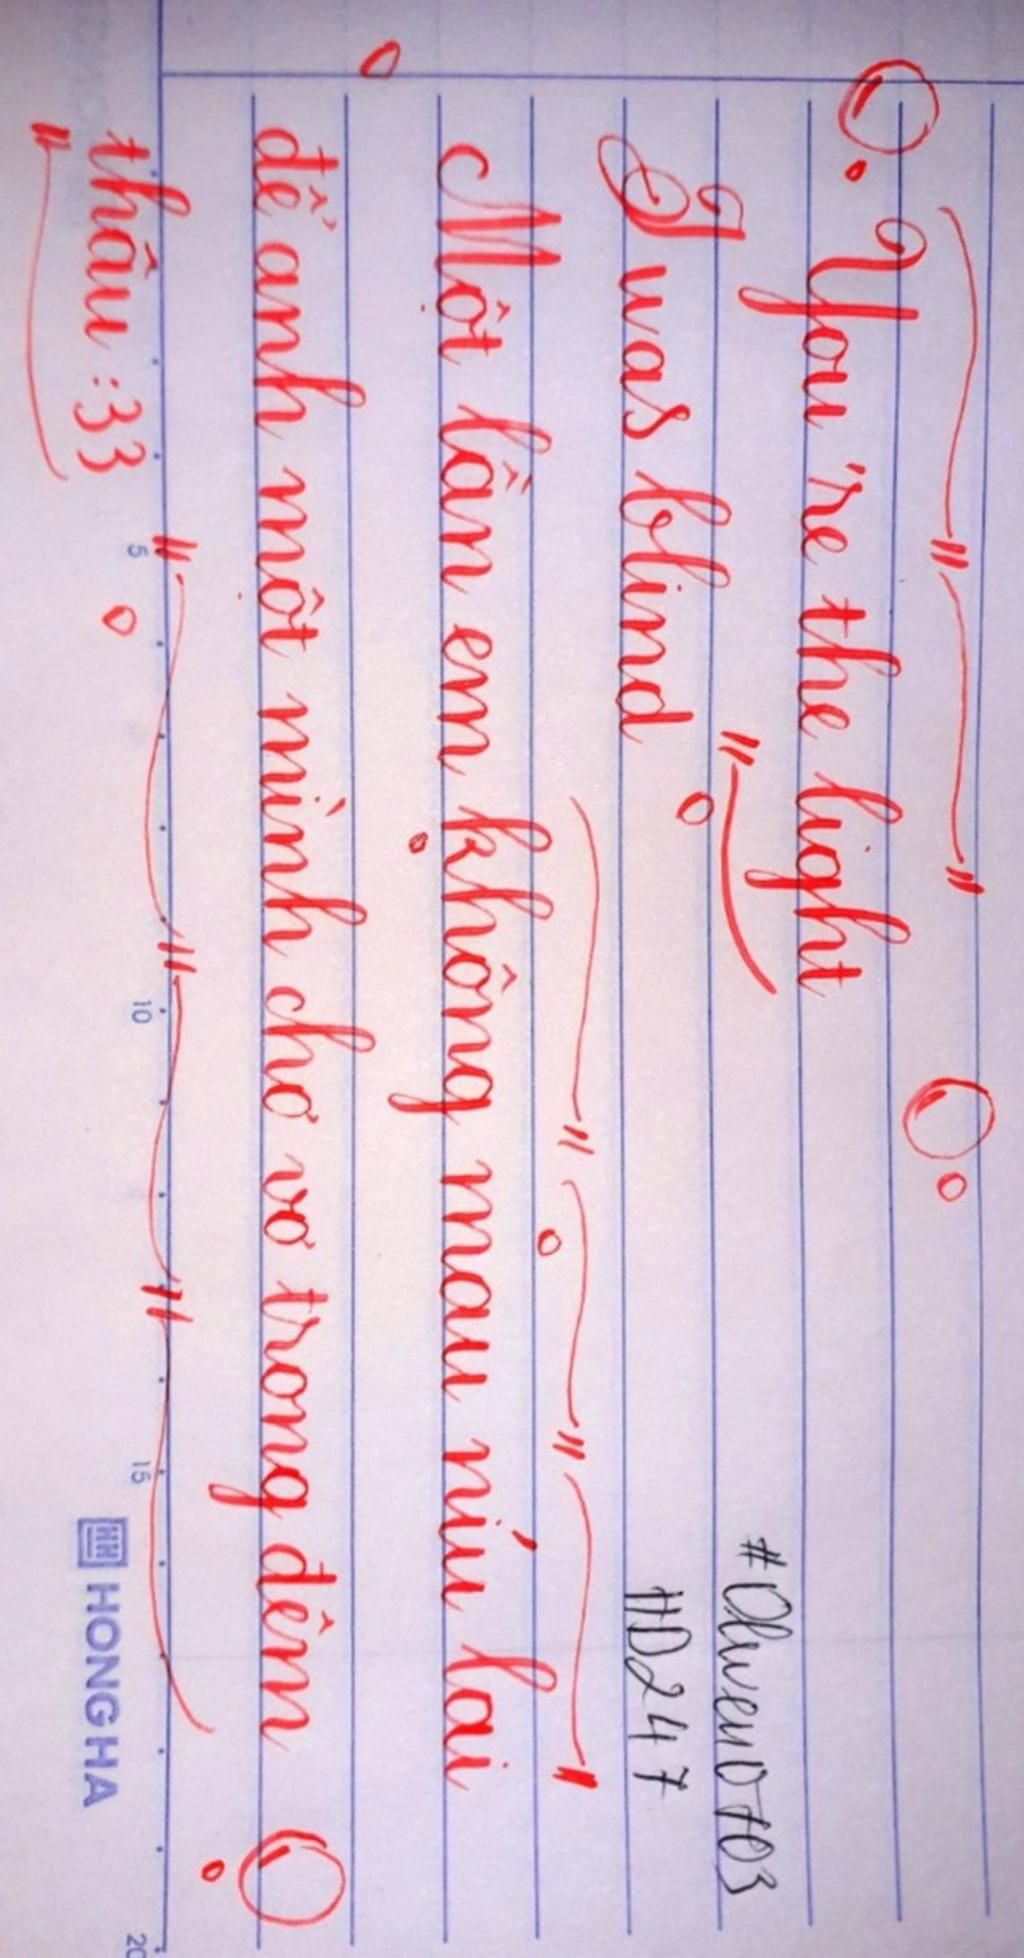 You're the light
I was blind
Một lần em không mau níu lại
để anh một mình chơ vơ trong đêm
thâu :33
#D247
5 10 15 20
HONG HA